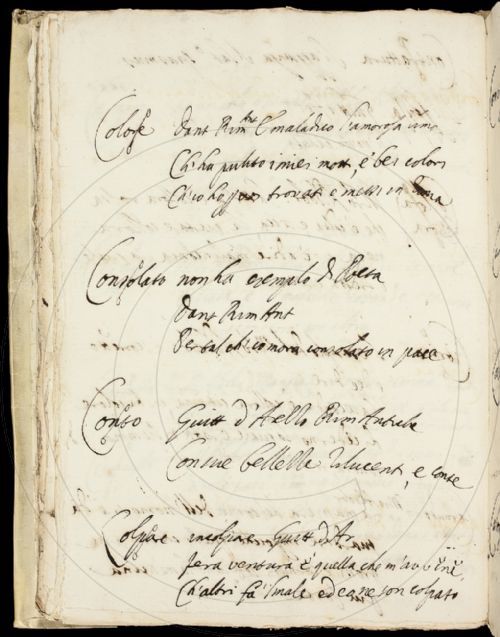 Colore Dant Rim Ant E maladico l'amorosa lima
Ch'ha pulito i miei mott, e bei colori
Ch'io ho per trovati e messi in rima
Consolato non ha esemplo di Poeta
Dant Rim Ant
Per dal ch'io mora consolato in pace
Conto Guitt d'Arezzo Rim Antiche
Con sue bellezze lucent, e conte
Colpare incolpare Guitt d'Ar
fera ventura è quella che m'av
Ch'altri fa 'l male ed eo ne son colpato